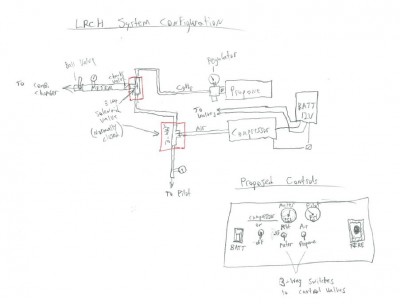 LRCH System Configuration
Ball Valve
Regulator
check valve
METER
To Comb chamber
3 way solenoid valve (Normally closed)
Propane
To valves
BATT 12V
Air
Compressor
To Pilot
Proposed Controls
Meter
Pilot
Compressor
on
off
Air
Meter
Propane
BATT
3-Way switches
to control valves